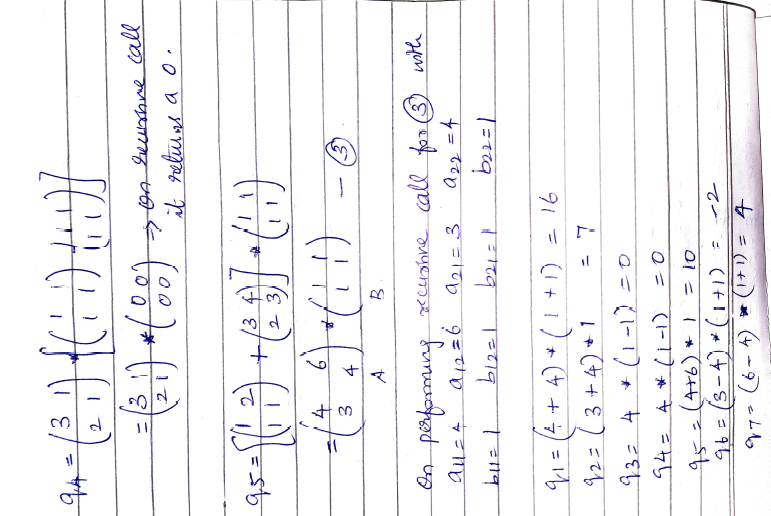 q4 = (3 1
2 1) * [(1 1
1 1) - (1 1
1 1)]
= (3 1
2 1) * (0 0
0 0) => on recursive call
it returns a 0.
q5 = [(1 2
1 1) + (3 4
2 3)] * (1 1
1 1)
= (4 6
3 4) * (1 1
1 1) - ③
A B
On performing recursive call for ③ with
a11 = 4 a12 = 6 a21 = 3 a22 = 4
b11 = 1 b12 = 1 b21 = 1 b22 = 1
q1 = (4 + 4) * (1 + 1) = 16
q2 = (3 + 4) * 1 = 7
q3 = 4 * (1 - 1) = 0
q4 = 4 * (1 - 1) = 0
q5 = (4 + 6) * 1 = 10
q6 = (3 - 4) * (1 + 1) = -2
q7 = (6 - 4) * (1 + 1) = 4